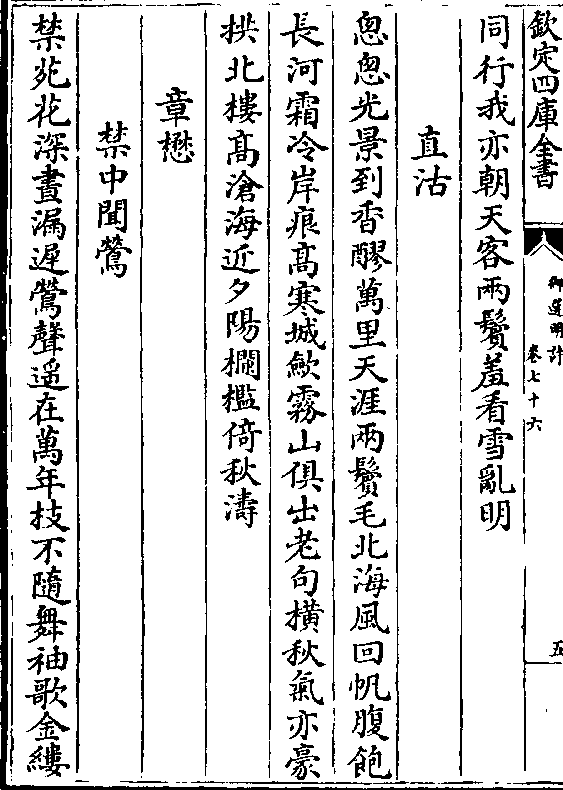 欽定四庫全書
御選明詩
卷七十六
五
同行我亦朝天客兩鬢羞看雪亂明
直沽
匆匆光景到香醪萬里天涯兩鬢毛北海風回帆腹飽
長河霜冷岸痕髙寒城歛霧山俱出老句橫秋氣亦豪
拱北樓髙滄海近夕陽欄檻倚秋濤
章懋
禁中聞鶯
禁苑花深晝漏遲鶯聲遥在萬年枝不隨舞袖歌金縷